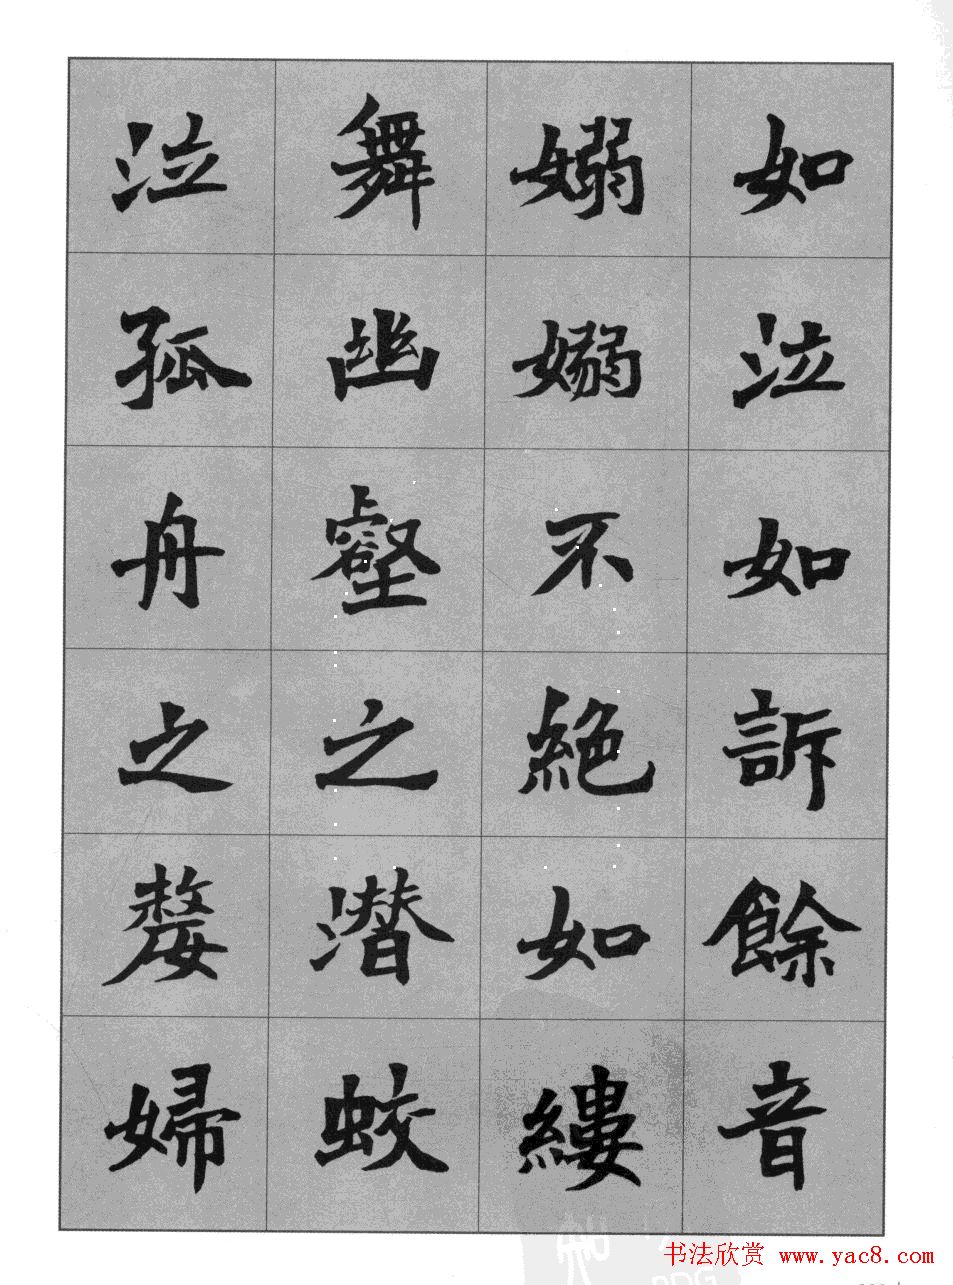 如泣如訴餘音
嫋嫋不絶如縷
舞幽壑之潜蛟
泣孤舟之嫠婦
书法欣赏 www.yac8.com